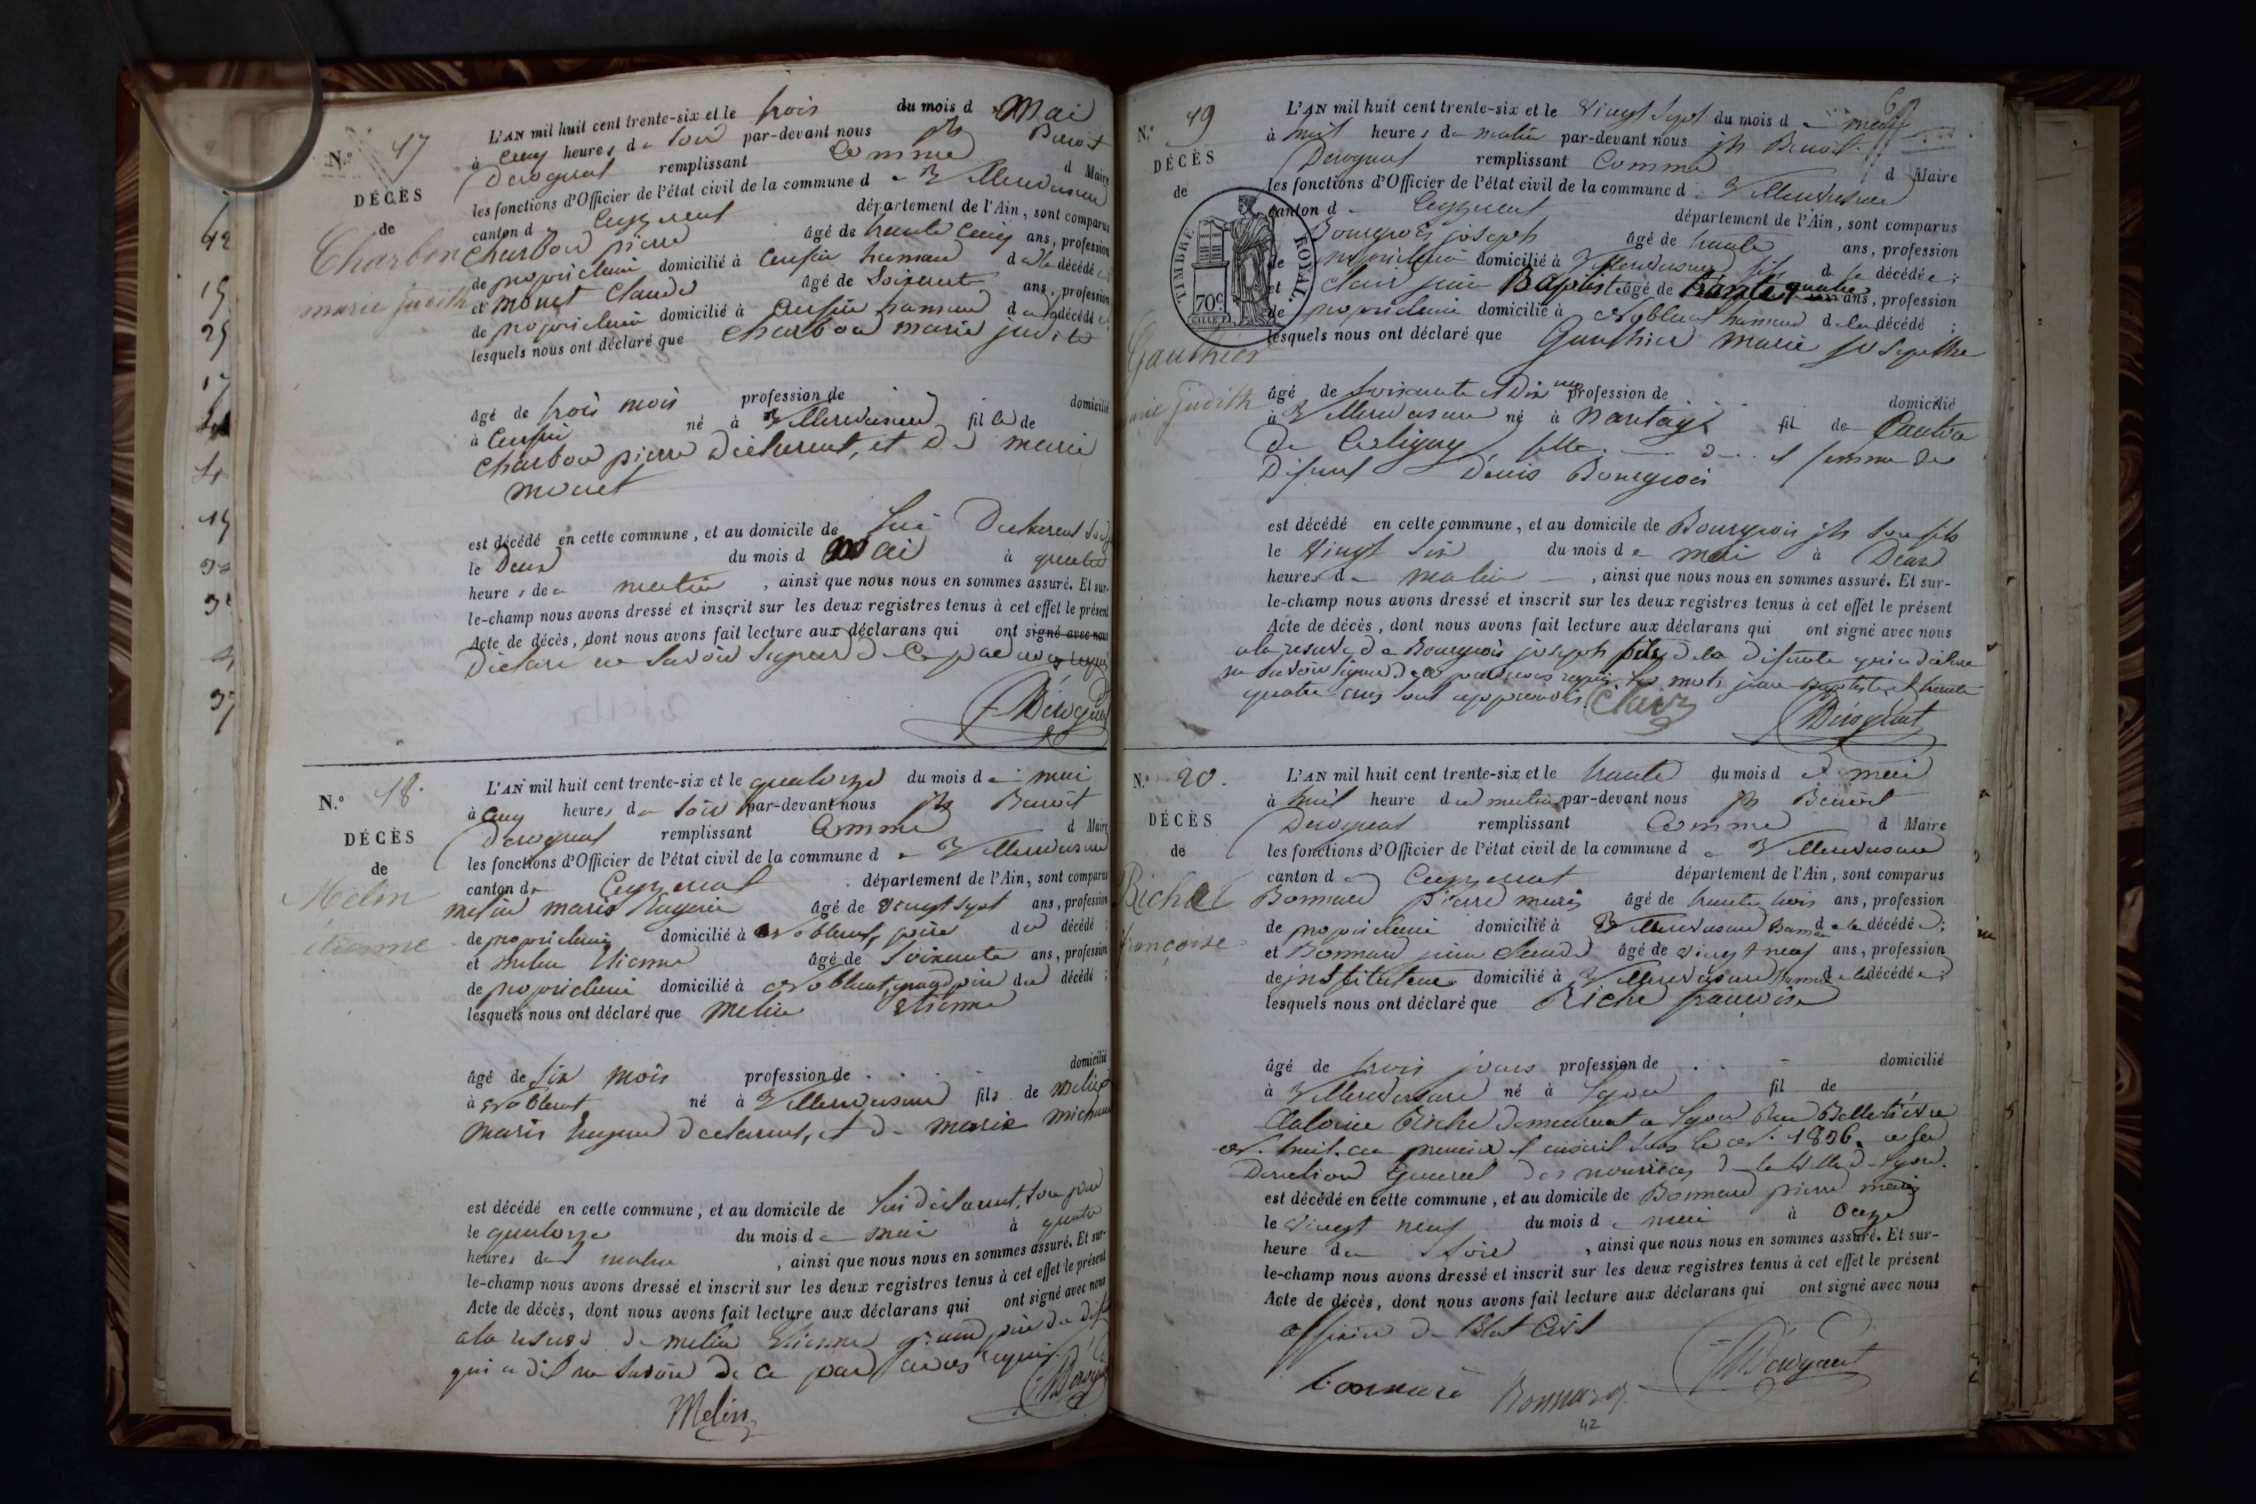 N.º 17
DÉCÈS
de
Charbon
marie judith
L'AN mil huit cent trente-six et le trois du mois d Mai
à cinq heures du soir par-devant nous jh Benoit
Derognat remplissant comme d Maire
les fonctions d'Officier de l'état civil de la commune d e Villereversure
canton d Ceyzeriat département de l'Ain, sont comparus
Charbon pierre âgé de trente cinq ans, profession
de propriétaire domicilié à hameau d la décédée
et monet Claude âgé de Soixante ans, profession
de propriétaire domicilié à hameau d décédé
lesquels nous ont déclaré que Charbon marie judith
âgé de trois mois profession de domicilié
à né à Villereversure fille de
Charbon pierre Déclarant, et De marie
monet
est décédé en cette commune, et au domicile de Déclarant
le Deux du mois d Mai à quatre
heures de matin, ainsi que nous nous en sommes assuré. Et sur-
le-champ nous avons dressé et inscrit sur les deux registres tenus à cet effet le présent
Acte de décès, dont nous avons fait lecture aux déclarans qui ont signé avec nous
Déclaré ne Savoir Signer de ce par nous requis
Derognat
N.º 18.
DÉCÈS
de
Melin
étienne
L'AN mil huit cent trente-six et le quatorze du mois de mai
à cinq heures du soir par-devant nous jh Benoit
Derognat remplissant comme d Maire
les fonctions d'Officier de l'état civil de la commune d e Villereversure
canton de Ceyzeriat département de l'Ain, sont comparus
melin marie Eugene âgé de vingt sept ans, profession
de propriétaire domicilié à Noblens, père du décédé
et melin Etienne âgé de Soixante ans, profession
de propriétaire domicilié à Noblens, grand père du décédé ;
lesquels nous ont déclaré que Melin Etienne
âgé de Six mois profession de domicilié
à Noblens né à Villereversure fils de Melin
marie Eugene déclarant, et de marie michaud
est décédé en cette commune, et au domicile de lui déclarant, son père
le quatorze du mois de mai à quatre
heures du matin, ainsi que nous nous en sommes assuré. Et sur-
le-champ nous avons dressé et inscrit sur les deux registres tenus à cet effet le présent
Acte de décès, dont nous avons fait lecture aux déclarans qui ont signé avec nous
a la reserve de melin Etienne grand père du
qui a dit ne savoir de ce par nous requis.
Melin
Derognat
N.º 19
DÉCÈS
de
Gauthier
marie judith
TIMBRE ROYAL
70c
L'AN mil huit cent trente-six et le vingt sept du mois de mai
à huit heures du matin par-devant nous jh Benoit
Derognat remplissant comme d Maire
les fonctions d'Officier de l'état civil de la commune d Villereversure
canton d Ceyzeriat département de l'Ain, sont comparus
Bourgeois joseph âgé de trente ans, profession
de propriétaire domicilié à Villereversure fils d la décédée ;
et Clair jean Baptiste âgé de trente quatre ans, profession
de propriétaire domicilié à Noblens hameau de la décédé ;
lesquels nous ont déclaré que Gauthier marie josephte
âgé de Soixante et Dix ans profession de domicilié
à Villereversure né à nantay fil de Canton
de Coligny fille d et femme de
Defunt Denis Bourgeois
est décédé en cette commune, et au domicile de Bourgeois jh Son fils
le vingt Six du mois de mai à Deux
heures de matin, ainsi que nous nous en sommes assuré. Et sur-
le-champ nous avons dressé et inscrit sur les deux registres tenus à cet effet le présent
Acte de décès, dont nous avons fait lecture aux déclarans qui ont signé avec nous
a la reserve de Bourgeois joseph fils de la Defunte qui a déclaré
ne savoir signer de ce par nous requis les mots jean Baptiste et trente
quatre ans sont approuvés. Clair
Derognat
N.º 20.
DÉCÈS
de
Riche
françoise
L'AN mil huit cent trente-six et le trente du mois de mai
à huit heure du matin par-devant nous jh Benoit
Derognat remplissant comme d Maire
les fonctions d'Officier de l'état civil de la commune d e Villereversure
canton de Ceyzeriat département de l'Ain, sont comparus
Bonnard pierre marie âgé de trente trois ans, profession
de propriétaire domicilié à Villereversure de la décédée ;
et Bonnard jean Claude âgé de vingt neuf ans, profession
de jnstituteur domicilié à Villereversure de la décédée ;
lesquels nous ont déclaré que Riche françoise
âgé de trois jours profession de domicilié
à Villereversure né à Lyon fil de
Riche demeurant a Lyon Rue
nº. huit. au premier et inscrit Sous le nº. 1836 a la
Direction General des nourrices de la Ville de Lyon.
est décédé en cette commune, et au domicile de Bonnard pierre marie
le vingt neuf du mois de mai à onze
heure du Soir, ainsi que nous nous en sommes assuré. Et sur-
le-champ nous avons dressé et inscrit sur les deux registres tenus à cet effet le présent
Acte de décès, dont nous avons fait lecture aux déclarans qui ont signé avec nous
officier de l'Etat Civil
bonnard Bonnard
Derognat
42